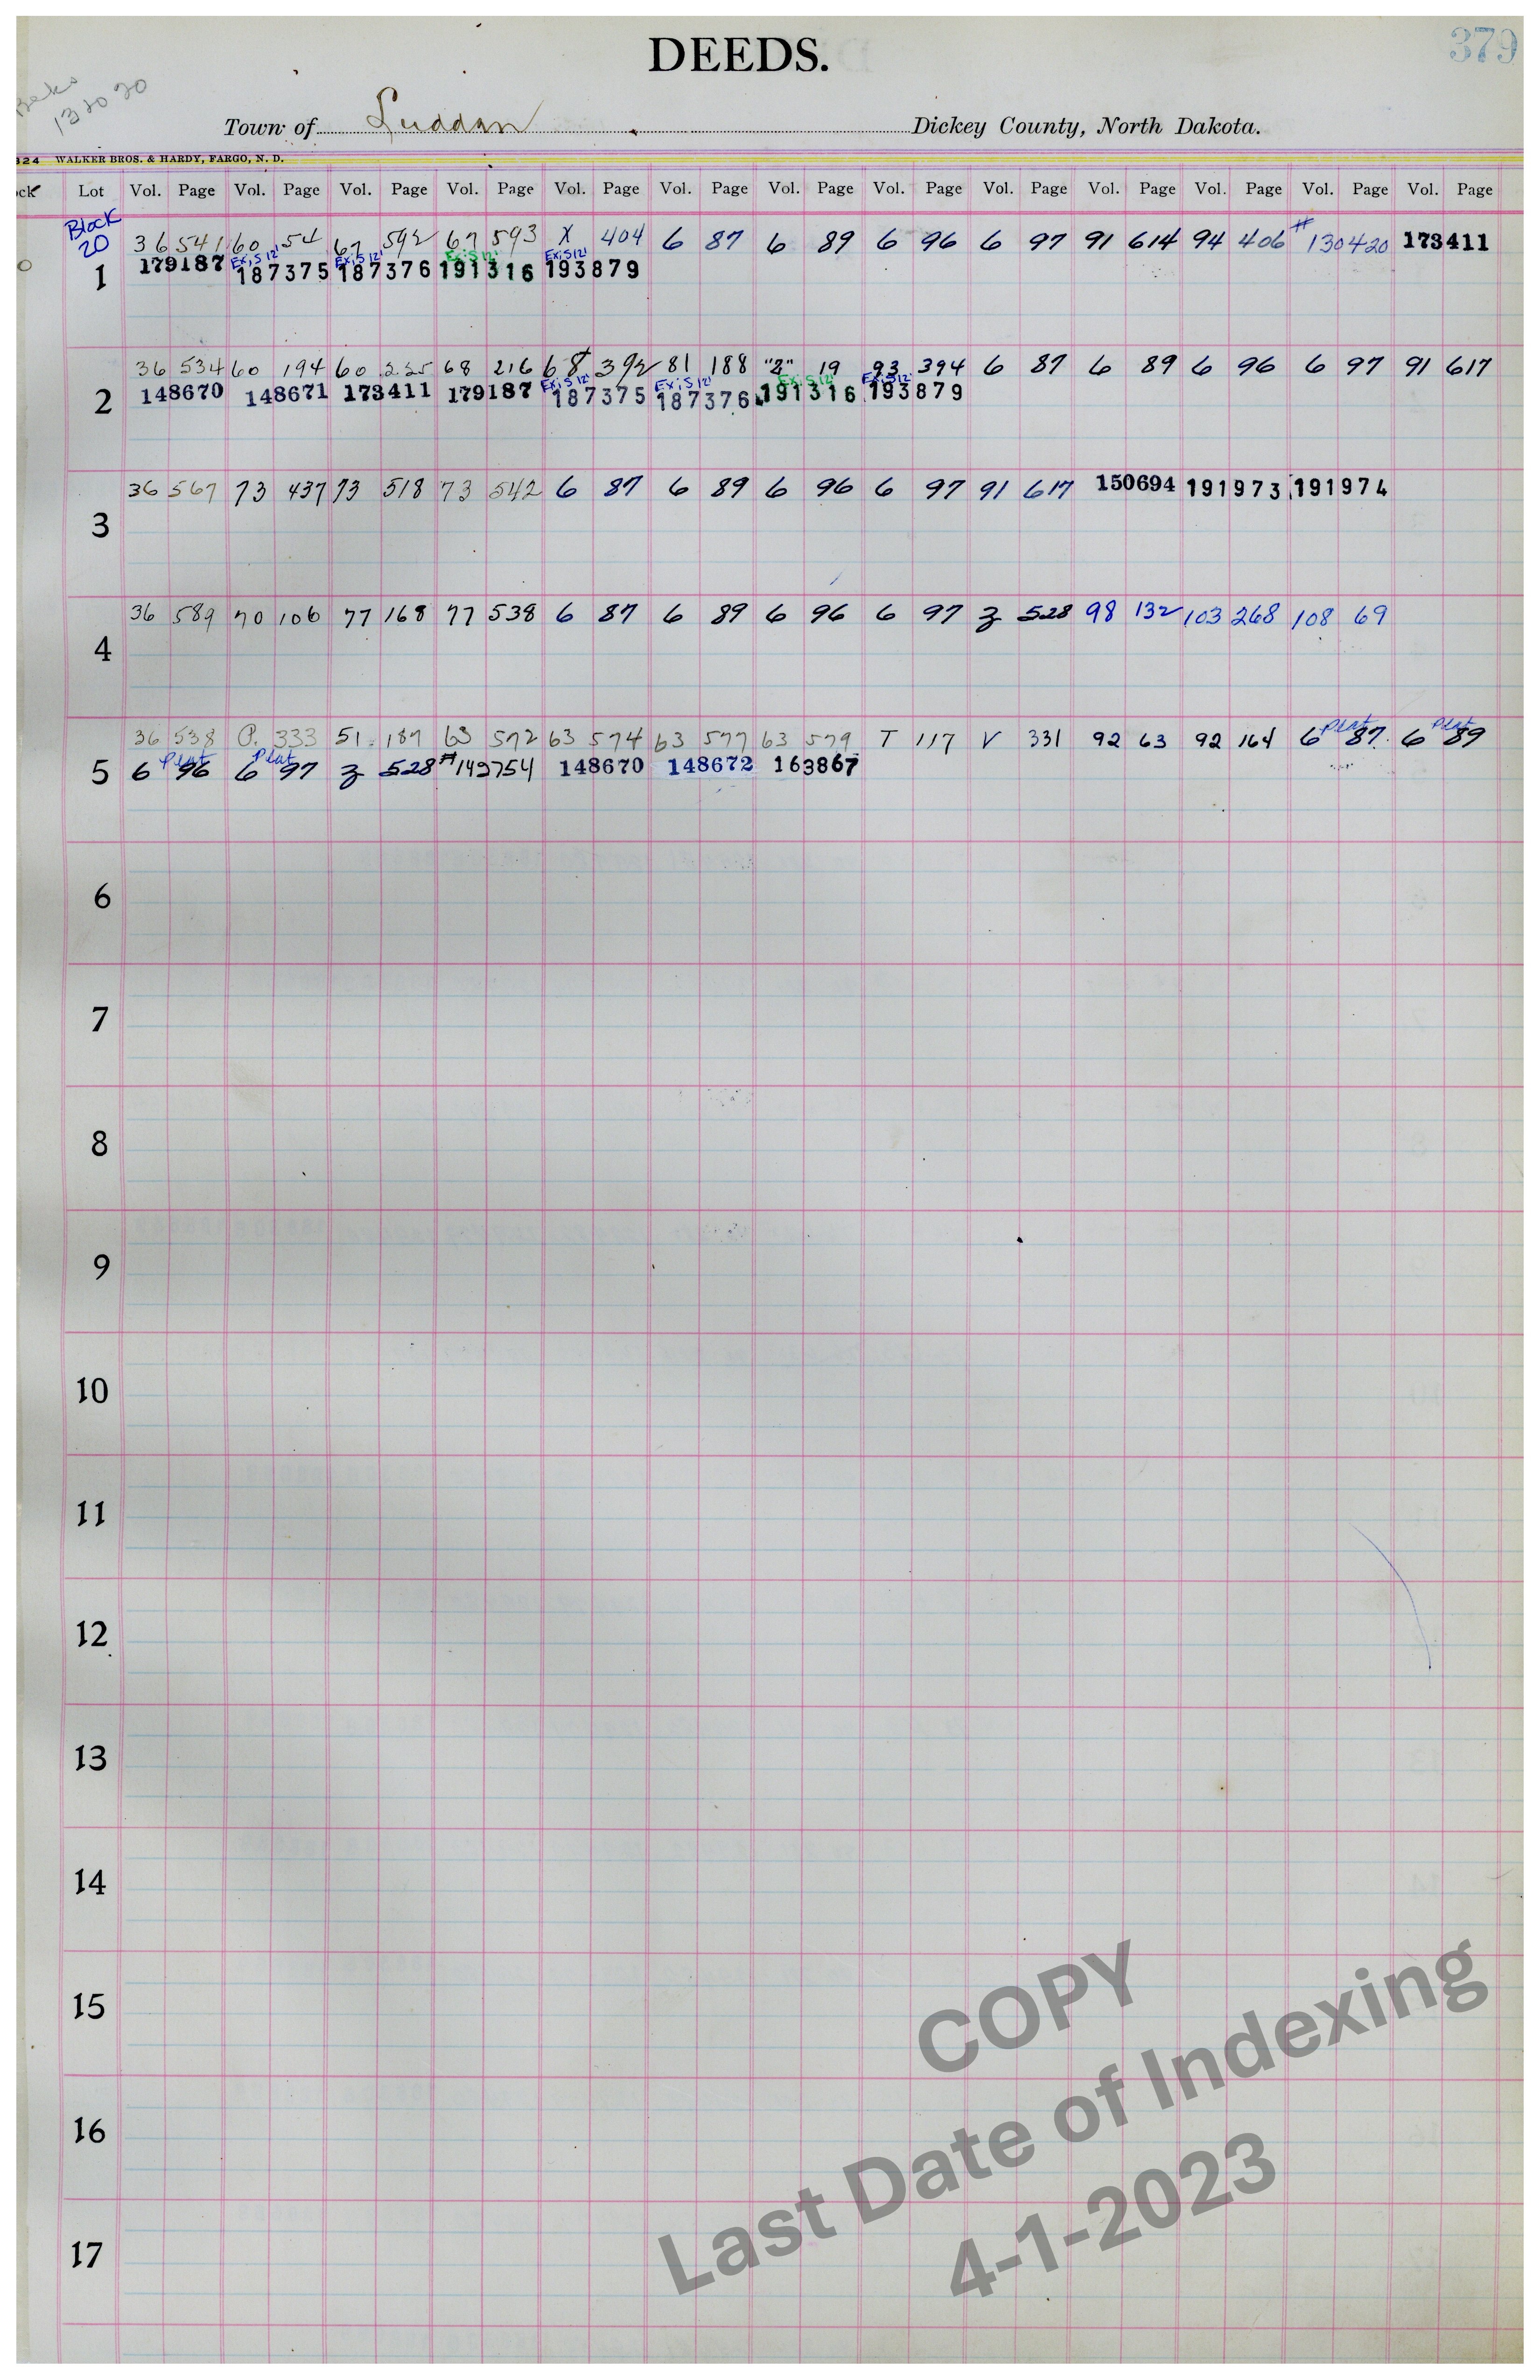 DEEDS.
379
132020
Town of Luddan Dickey County, North Dakota.
324 WALKER BROS. & HARDY, FARGO, N. D.
ock Lot Vol. Page Vol. Page Vol. Page Vol. Page Vol. Page Vol. Page Vol. Page Vol. Page Vol. Page Vol. Page Vol. Page Vol. Page Vol. Page
Block
20
36 541 60 54 67 592 67 593 X 404 6 87 6 89 6 96 6 97 91 614 94 406 #130420 173411
Ex; S 12' Ex; S 12' Ex; S 12' Ex; S 12'
1 179187 187375 187376 191316 193879
36 534 60 194 60 225 68 216 68 392 81 188 "2" 19 93 394 6 87 6 89 6 96 6 97 91 617
Ex; S 12' Ex; S 12' Ex; S 12' Ex; S 12'
2 148670 148671 173411 179187 187375 187376 191316 193879
36 567 73 437 73 518 73 542 6 87 6 89 6 96 6 97 91 617 150694 191973 191974
3
36 589 70 106 77 168 77 538 6 87 6 89 6 96 6 97 Z 528 98 132 103 268 108 69
4
36 538 P. 333 51 187 63 572 63 574 63 577 63 579 T 117 V 331 92 63 92 164 6 Plat 87 6 Plat 89
5 6 Plat 96 6 Plat 97 Z 528 #142754 148670 148672 163867
6
7
8
9
10
11
12
13
14
15
16
17
COPY
Last Date of Indexing
4-1-2023